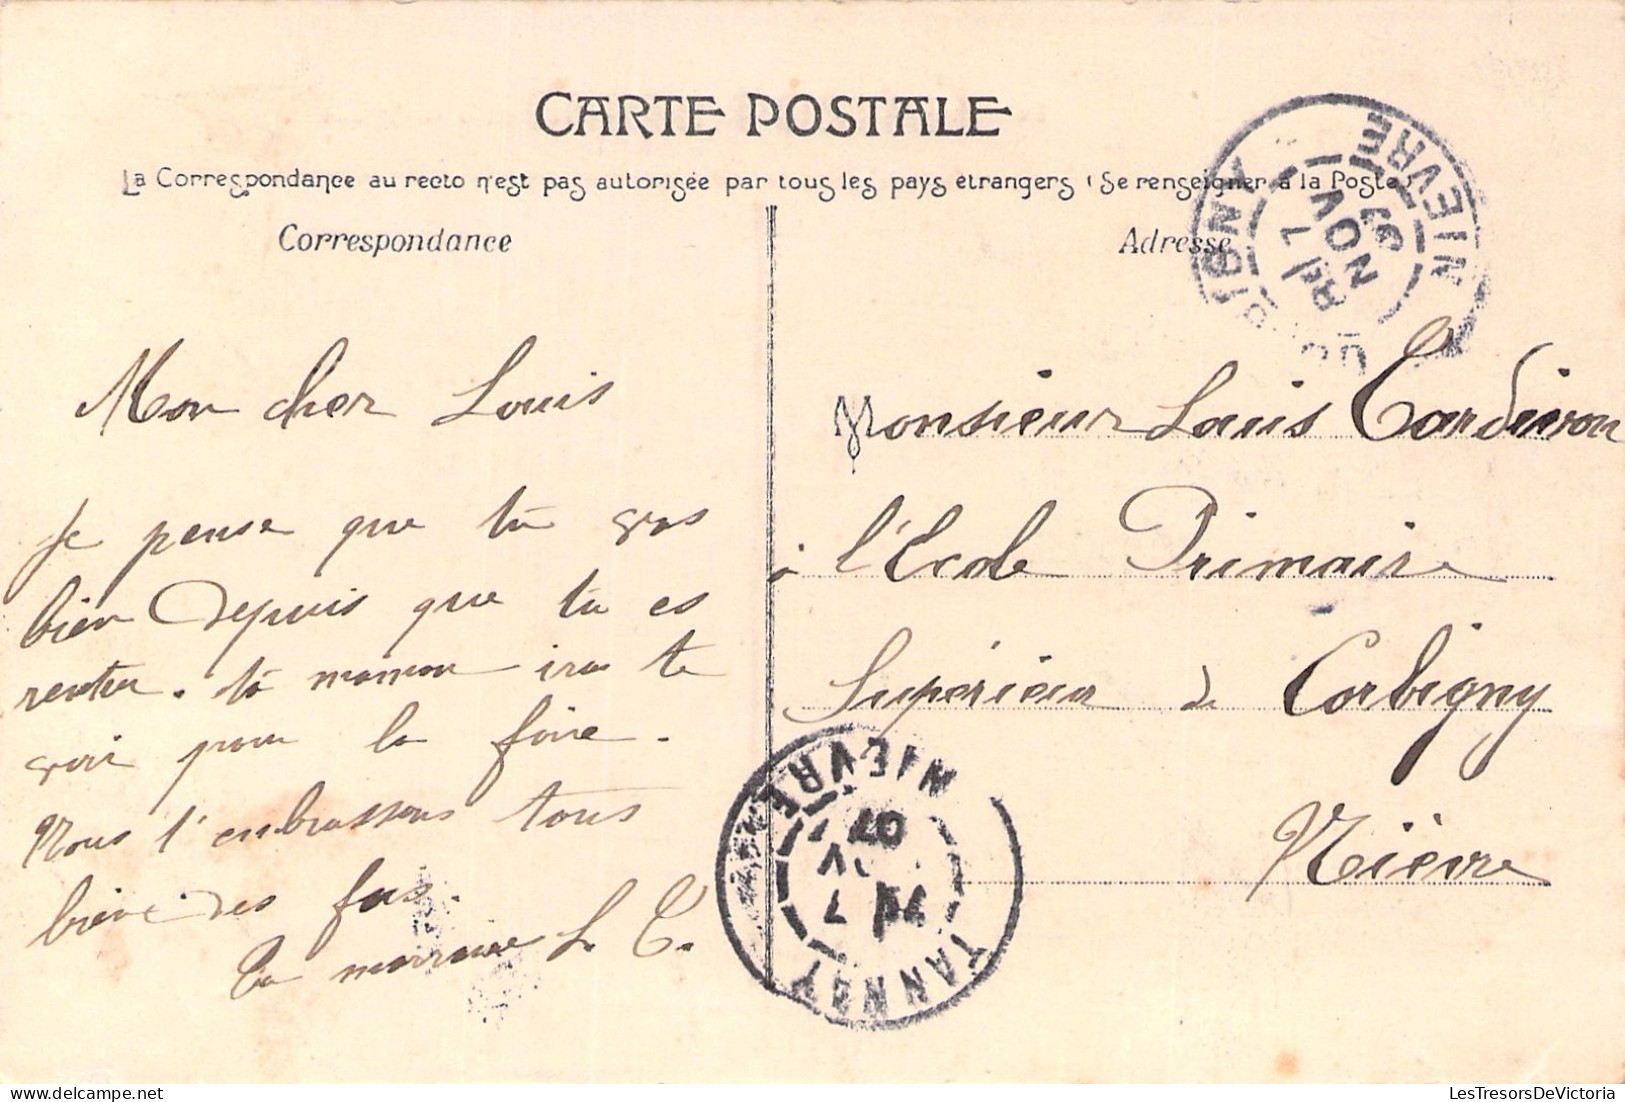 CARTE POSTALE
La Correspondance au recto n'est pas autorisée par tous les pays étrangers (Se renseigner à la Poste)
Correspondance
Adresse
Mon cher Louis
Je pense que tu vas
bien depuis que tu es
rentré. ta maman ira te
voir pour la foire.
Nous t'embrassons tous
bien des fois.
Ta marraine L. C.
Monsieur Louis Tardivon
à l'École Primaire
Supérieur de Corbigny
Nièvre
NIEVRE
7
NOV
TANNAY
NIEVRE
7
07
LesTresorsDeVictoria.com